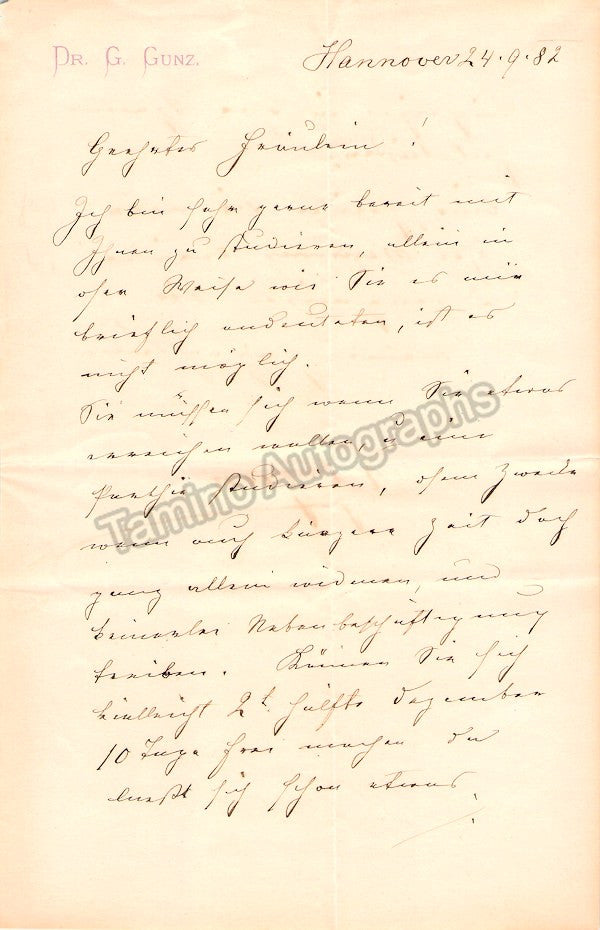 DR. G. GUNZ.
Hannover 24.9.82
Geehrtes Fräulein!
Ich bin sehr gerne bereit mit
Ihnen zu studieren, allein in
der Weise wie Sie es mir
brieflich andeuteten, ist es
nicht möglich.
Sie müssen sich wenn Sie etwas
erreichen wollen, u eine
Parthie studieren, dem Zwecke
wenn auch kürzere Zeit doch
ganz allein widmen, und
keinerlei Nebenbeschäftigung
treiben. Können Sie sich
vielleicht 2t. Hälfte Dezember
10 Tage frei machen da
ließt sich schon etwas
Tamino Autographs